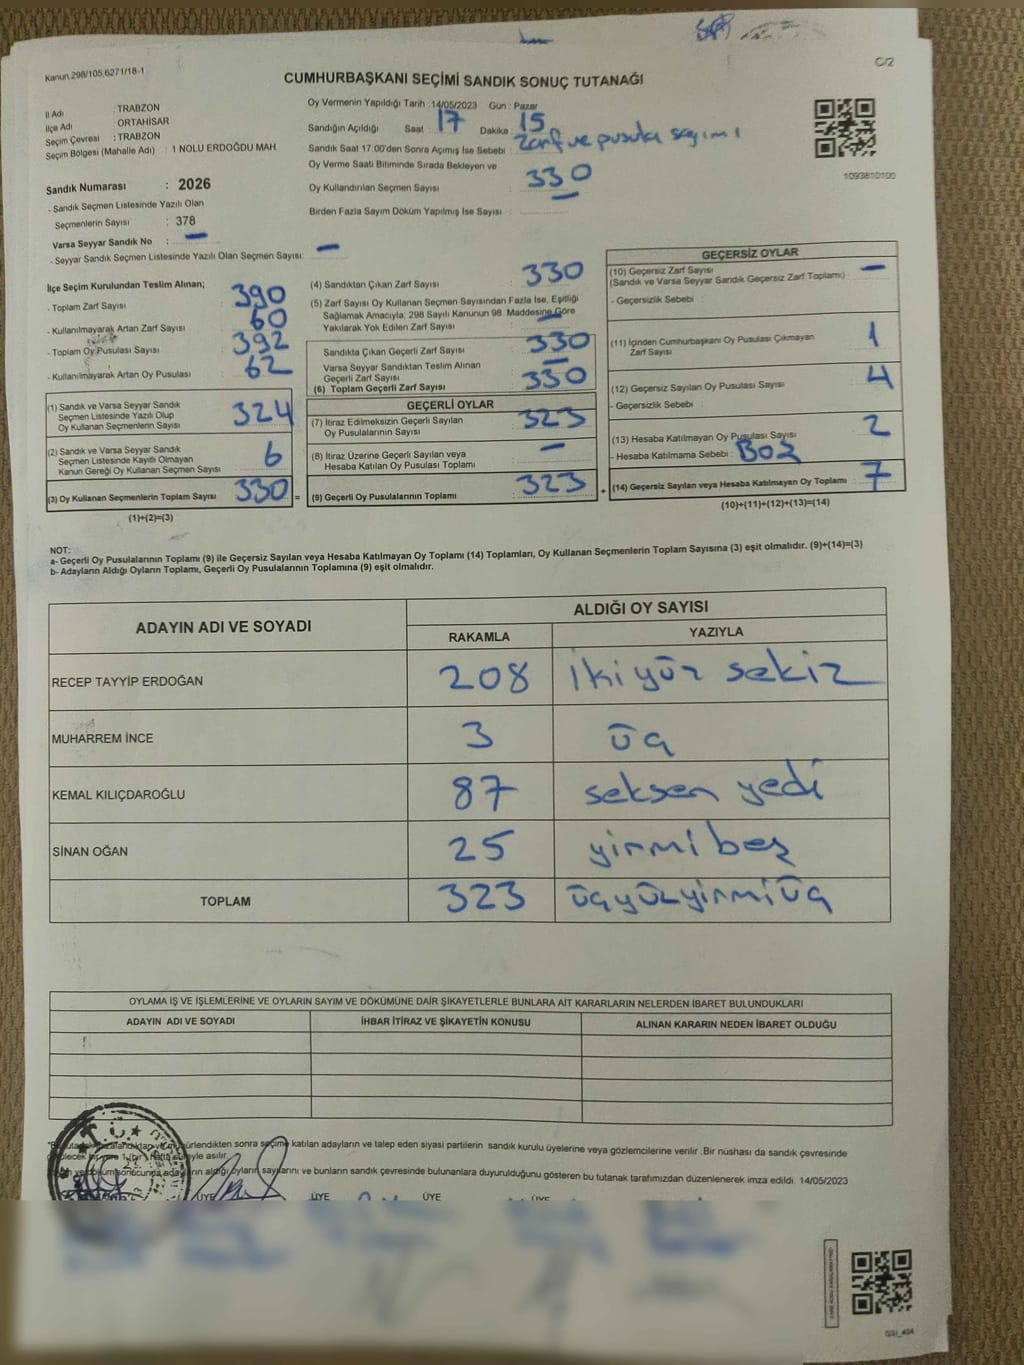 Kanun.298/105,6271/18-1
C/2
CUMHURBAŞKANI SEÇİMİ SANDIK SONUÇ TUTANAĞI
İl Adı : TRABZON
İlçe Adı : ORTAHİSAR
Seçim Çevresi : TRABZON
Seçim Bölgesi (Mahalle Adı) : 1 NOLU ERDOĞDU MAH.
Oy Vermenin Yapıldığı Tarih : 14/05/2023 Gün : Pazar
Sandığın Açıldığı Saat : 17 Dakika : 15
Sandık Saat 17.00'den Sonra Açımış İse Sebebi : Zarf ve pusula sayımı
Oy Verme Saati Bitiminde Sırada Bekleyen ve
Oy Kullandırılan Seçmen Sayısı : 330
Birden Fazla Sayım Döküm Yapılmış İse Sayısı :
1093810100
Sandık Numarası : 2026
- Sandık Seçmen Listesinde Yazılı Olan
Seçmenlerin Sayısı : 378
Varsa Seyyar Sandık No : —
- Seyyar Sandık Seçmen Listesinde Yazılı Olan Seçmen Sayısı: —
İlçe Seçim Kurulundan Teslim Alınan;
- Toplam Zarf Sayısı : 390
- Kullanılmayarak Artan Zarf Sayısı : 60
- Toplam Oy Pusulası Sayısı : 392
- Kullanılmayarak Artan Oy Pusulası : 62
(1) Sandık ve Varsa Seyyar Sandık
Seçmen Listesinde Yazılı Olup
Oy Kullanan Seçmenlerin Sayısı : 324
(2) Sandık ve Varsa Seyyar Sandık
Seçmen Listesinde Kayıtlı Olmayan
Kanun Gereği Oy Kullanan Seçmen Sayısı : 6
(3) Oy Kullanan Seçmenlerin Toplam Sayısı : 330 =
(1)+(2)=(3)
(4) Sandıktan Çıkan Zarf Sayısı : 330
(5) Zarf Sayısı Oy Kullanan Seçmen Sayısından Fazla İse, Eşitliği
Sağlamak Amacıyla, 298 Sayılı Kanunun 98. Maddesine Göre
Yakılarak Yok Edilen Zarf Sayısı : —
Sandıkta Çıkan Geçerli Zarf Sayısı : 330
Varsa Seyyar Sandıktan Teslim Alınan
Geçerli Zarf Sayısı : —
(6) Toplam Geçerli Zarf Sayısı : 330
GEÇERLİ OYLAR
(7) İtiraz Edilmeksizin Geçerli Sayılan
Oy Pusulalarının Sayısı : 323
(8) İtiraz Üzerine Geçerli Sayılan veya
Hesaba Katılan Oy Pusulası Toplamı : —
(9) Geçerli Oy Pusulalarının Toplamı : 323 +
GEÇERSİZ OYLAR
(10) Geçersiz Zarf Sayısı
(Sandık ve Varsa Seyyar Sandık Geçersiz Zarf Toplamı) : —
- Geçersizlik Sebebi :
(11) İçinden Cumhurbaşkanı Oy Pusulası Çıkmayan
Zarf Sayısı : 1
(12) Geçersiz Sayılan Oy Pusulası Sayısı : 4
- Geçersizlik Sebebi :
(13) Hesaba Katılmayan Oy Pusulası Sayısı : 2
- Hesaba Katılmama Sebebi : BOŞ
(14) Geçersiz Sayılan veya Hesaba Katılmayan Oy Toplamı : 7
(10)+(11)+(12)+(13)=(14)
NOT:
a- Geçerli Oy Pusulalarının Toplamı (9) ile Geçersiz Sayılan veya Hesaba Katılmayan Oy Toplamı (14) Toplamları, Oy Kullanan Seçmenlerin Toplam Sayısına (3) eşit olmalıdır. (9)+(14)=(3)
b- Adayların Aldığı Oyların Toplamı, Geçerli Oy Pusulalarının Toplamına (9) eşit olmalıdır.
ADAYIN ADI VE SOYADI
ALDIĞI OY SAYISI
RAKAMLA YAZIYLA
RECEP TAYYİP ERDOĞAN 208 İki yüz sekiz
MUHARREM İNCE 3 üç
KEMAL KILIÇDAROĞLU 87 seksen yedi
SİNAN OĞAN 25 yirmi beş
TOPLAM 323 üçyüzyirmiüç
OYLAMA İŞ VE İŞLEMLERİNE VE OYLARIN SAYIM VE DÖKÜMÜNE DAİR ŞİKAYETLERLE BUNLARA AİT KARARLARIN NELERDEN İBARET BULUNDUKLARI
ADAYIN ADI VE SOYADI İHBAR İTİRAZ VE ŞİKAYETİN KONUSU ALINAN KARARIN NEDEN İBARET OLDUĞU
sonra seçime katılan adayların ve talep eden siyasi partilerin sandık kurulu üyelerine veya gözlemcilerine verilir .Bir nüshası da sandık çevresinde
asılır.
aldığı oyların sayılarını ve bunların sandık çevresinde bulunanlara duyurulduğunu gösteren bu tutanak tarafımızdan düzenlenerek imza edildi. 14/05/2023
ÜYE ÜYE ÜYE ÜYE